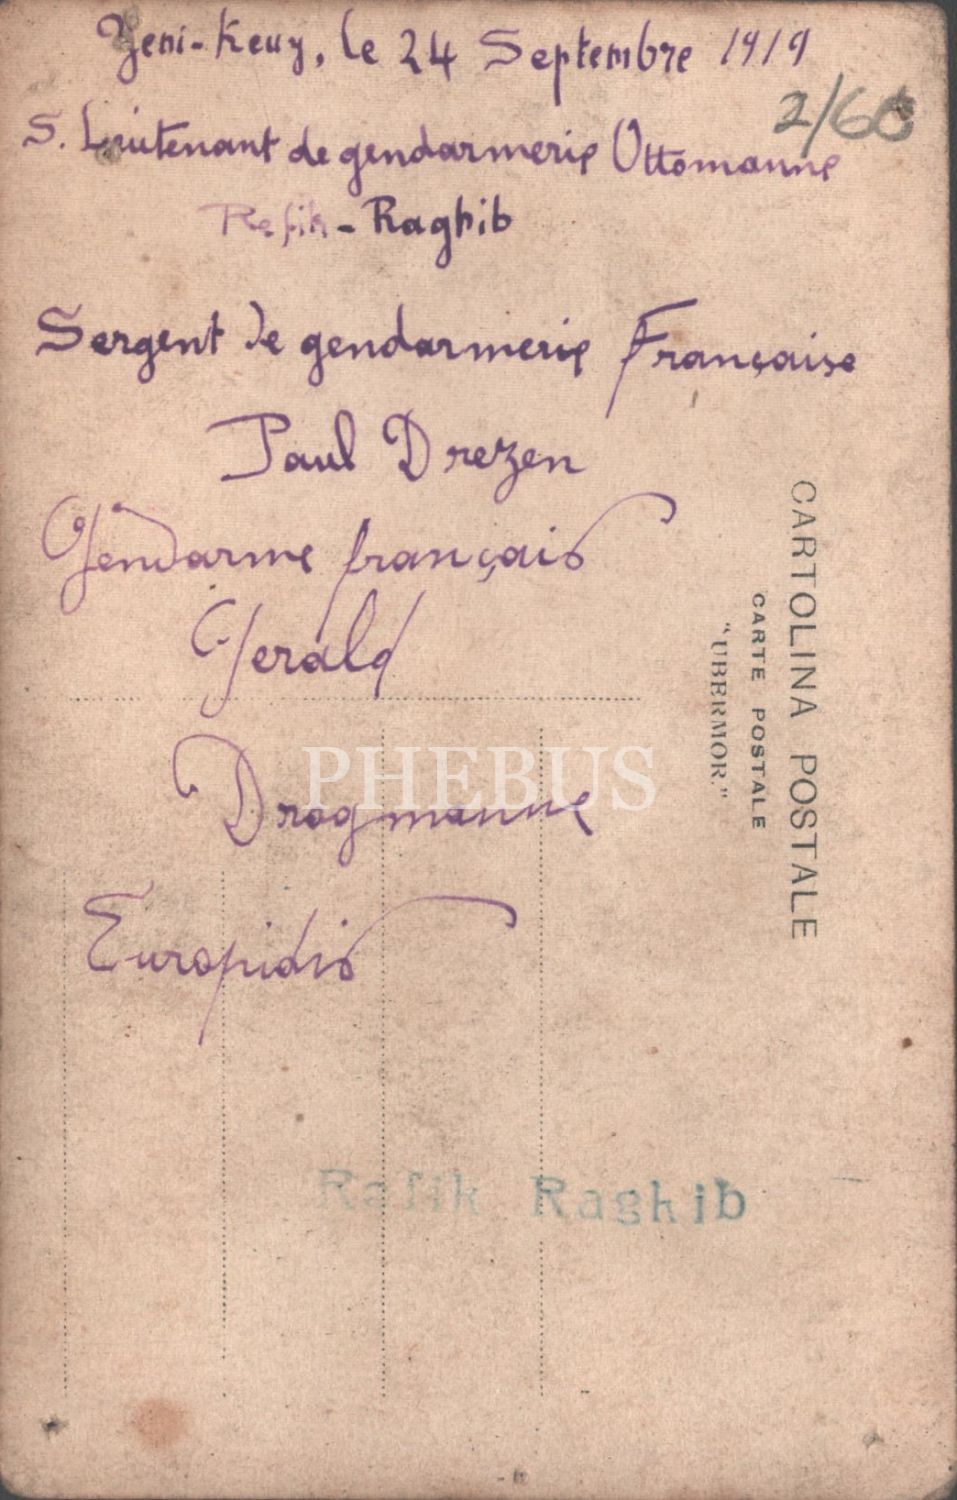 Yeni-Keuy, le 24 Septembre 1919
2/60
S. Lieutenant de gendarmerie Ottomanne
Refik-Raghib
Sergent de gendarmerie Française
Paul Drezen
Gendarme français
Gerald
Dragmanne
Europidis
Rafik Raghib
CARTOLINA POSTALE
CARTE POSTALE
"UBERMOR."
PHEBUS